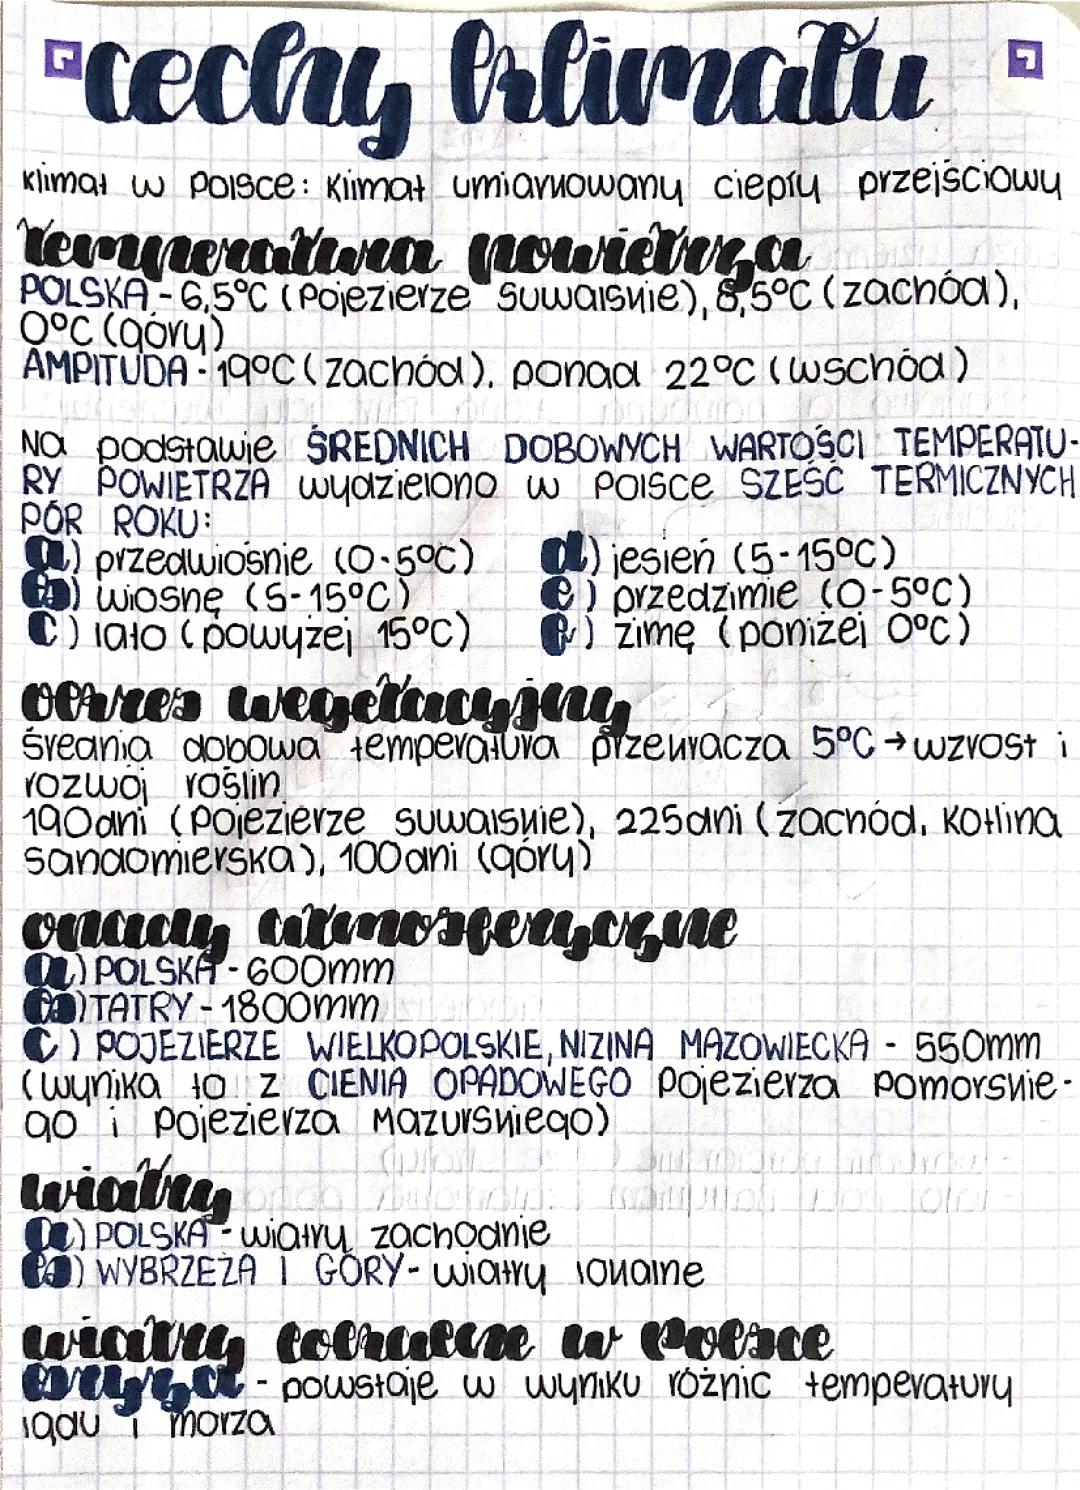 cechy klimatu
klimat w Polsce: klimat umiarkowany ciepły przejściowy
temperatura powietrza
POLSKA - 6,5°C (Pojezierze Suwalskie), 8,5°C (zachód),
0°C (góry)
AMPITUDA - 19°C (zachód), ponad 22°C (wschód)
Na podstawie ŚREDNICH DOBOWYCH WARTOŚCI TEMPERATU-
RY POWIETRZA wydzielono w Polsce SZEŚĆ TERMICZNYCH
PÓR ROKU:
a) przedwiośnie (0-5°C)
b) wiosnę (5-15°C)
c) lato (powyżej 15°C)
d) jesień (5-15°C)
e) przedzimie (0-5°C)
f) zimę (poniżej 0°C)
okres wegetacyjny
średnia dobowa temperatura przekracza 5°C → wzrost i
rozwój roślin
190 dni (Pojezierze Suwalskie), 225 dni (zachód, Kotlina
Sandomierska), 100 dni (góry)
opady atmosferyczne
a) POLSKA - 600mm
b) TATRY - 1800mm
c) POJEZIERZE WIELKOPOLSKIE, NIZINA MAZOWIECKA - 550mm
(wynika to z CIENIA OPADOWEGO Pojezierza Pomorskie-
go i Pojezierza Mazurskiego)
wiatry
a) POLSKA - wiatry zachodnie
b) WYBRZEŻA I GÓRY - wiatry lokalne
wiatry lokalne w Polsce
bryza - powstaje w wyniku różnic temperatury
lądu i morza